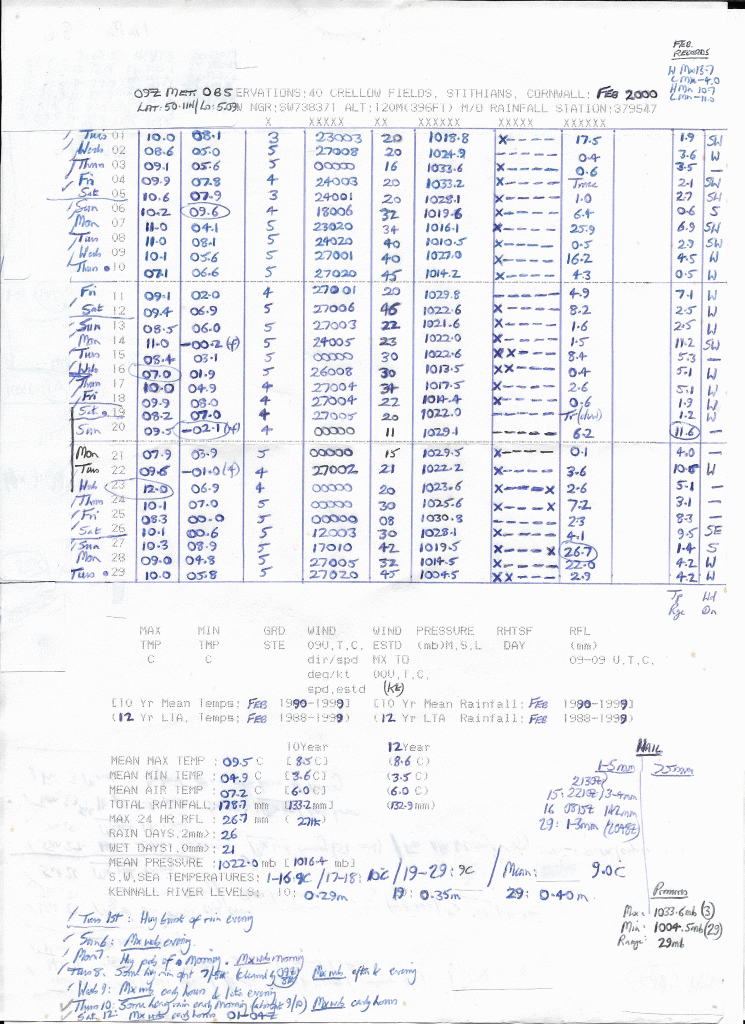 FEB.
RECORDS
H Mx 13.7
L Mx -4.0
H Mn 10.7
L Mn -11.0
09Z MET OBSERVATIONS: 40 CRELLOW FIELDS, STITHIANS, CORNWALL: FEB 2000
LAT: 50.11N/Lo: 5.09W NGR:SW738371 ALT:120M(396FT) M/O RAINFALL STATION:379547
X XXXXX XX XXXXXX XXXXX XXXXXX
Tues 01 10.0 08.1 3 23003 20 1018.8 X---- 17.5 1.9 SW
Weds 02 08.6 05.0 5 27008 20 1024.9 ----- 0.4 3.6 W
Thurs 03 09.1 05.6 5 00000 16 1033.6 ----- 0.6 3.5 —
Fri 04 09.9 07.8 4 24003 20 1033.2 ----- Trace 2.1 SW
Sat 05 10.6 07.9 3 24001 20 1028.1 ----- 1.0 2.7 SW
Sun 06 10.2 09.6 4 18006 32 1019.6 X---- 6.4 0.6 S
Mon 07 11.0 04.1 5 23020 34 1016.1 X---- 25.9 6.9 SW
Tues 08 11.0 08.1 5 24020 40 1010.5 X---- 0.5 2.9 SW
Weds 09 10.1 05.6 5 27001 40 1027.0 X---- 16.2 4.5 W
Thurs 10 07.1 06.6 5 27020 45 1014.2 X---- 4.3 0.5 W
Fri 11 09.1 02.0 4 27001 20 1029.8 ----- 4.9 7.1 W
Sat 12 09.4 06.9 5 27006 46 1022.6 X---- 8.2 2.5 W
Sun 13 08.5 06.0 5 27003 22 1021.6 X---- 1.6 2.5 W
Mon 14 11.0 -00.2 (4) 5 24005 23 1022.0 X---- 1.5 11.2 SW
Tues 15 08.4 03.1 5 00000 30 1022.6 XX--- 8.4 5.3 —
Weds 16 07.0 01.9 5 26008 30 1013.5 XX--- 0.4 5.1 W
Thurs 17 10.0 04.9 4 27004 34 1017.5 X---- 2.6 5.1 W
Fri 18 09.9 08.0 4 27004 22 1014.4 X---- 0.6 1.9 W
Sat 19 08.2 07.0 4 27005 20 1022.0 ----- Tr (dew) 1.2 W
Sun 20 09.5 -02.1 (4) 4 00000 11 1029.1 ----- 6.2 11.6 —
Mon 21 07.9 03.9 5 00000 15 1029.5 X---- 0.1 4.0 —
Tues 22 09.8 -01.0 (4) 4 27002 21 1022.2 ----- 3.6 10.8 W
Weds 23 12.0 06.9 4 00000 20 1023.6 X---X 2.6 5.1 —
Thurs 24 10.1 07.0 5 00000 30 1025.6 ----X 7.2 3.1 —
Fri 25 08.3 00.0 5 00000 08 1030.8 ----- 2.3 8.3 —
Sat 26 10.1 00.6 5 12003 30 1028.1 ----- 4.1 9.5 SE
Sun 27 10.3 08.9 5 17010 42 1019.5 X---X 26.7 1.4 S
Mon 28 09.0 04.8 5 27005 32 1014.5 X---- 22.0 4.2 W
Tues 29 10.0 05.8 5 27020 45 1004.5 XX--- 2.9 4.2 W
Tp Wd
Rge Dn
MAX MIN GRD WIND WIND PRESSURE RHTSF RFL
TMP TMP STE 09U.T.C. ESTD (mb)M.S.L DAY (mm)
C C dir/spd MX TO 09-09 U.T.C.
deg/kt 00U.T.C.
spd.estd (kt)
[10 Yr Mean Temps: FEB 1990-1999] [10 Yr Mean Rainfall: FEB 1990-1999]
(12 Yr LTA. Temps: FEB 1988-1999) (12 Yr LTA Rainfall: FEB 1988-1999)
10Year 12Year
MEAN MAX TEMP : 09.5 C [8.5C] (8.6 C)
MEAN MIN TEMP : 04.9 C [3.6C] (3.5 C)
MEAN AIR TEMP : 07.2 C [6.0C] (6.0 C)
TOTAL RAINFALL: 178.7 mm [133.2 mm] (132.9 mm)
MAX 24 HR RFL : 26.7 mm (27th)
RAIN DAYS.2mm): 26
WET DAYS(1.0mm): 21
MEAN PRESSURE : 1022.0 mb [1016.4 mb]
S.W.SEA TEMPERATURES: 1-16 9C / 17-18: 10C / 19-29: 9C / Mean: 9.0C
KENNALL RIVER LEVELS: 10: 0.29m 19: 0.35m 29: 0.40m
HAIL
1-5mm >5mm
2130Z
15: 2210Z) 3-4mm
16 0815Z 1-12mm
29: 1-3mm (2048Z)
Pressures
Max: 1033.6mb (3)
Min: 1004.5mb (29)
Range: 29mb
Tues 1st: Hvy burst of rain evening
Sun 6: Mx wds evening.
Mon 7: Hvy pds of morning. Mx wds morning
Tues 8: Some hvy rain o'nt 7/8th (cleared by 09Z 8th) Mx wds aftn & evening
Weds 9: Mx wds early hours & late evening
Thurs 10: Some heavy rain early morning (o'night 9/10) Mx wds early hours
Sat 12: Mx wds early hours 01-04Z